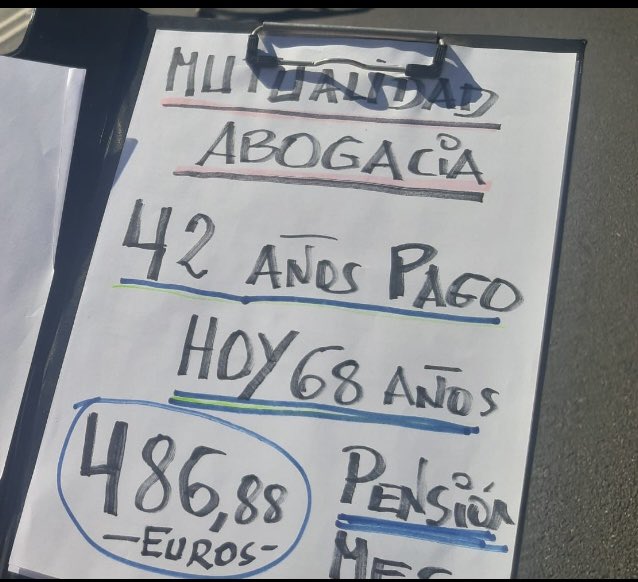 MUTUALIDAD
ABOGACIA
42 AÑOS PAGO
HOY 68 AÑOS
486,88
-EUROS-
PENSIÓN
MES